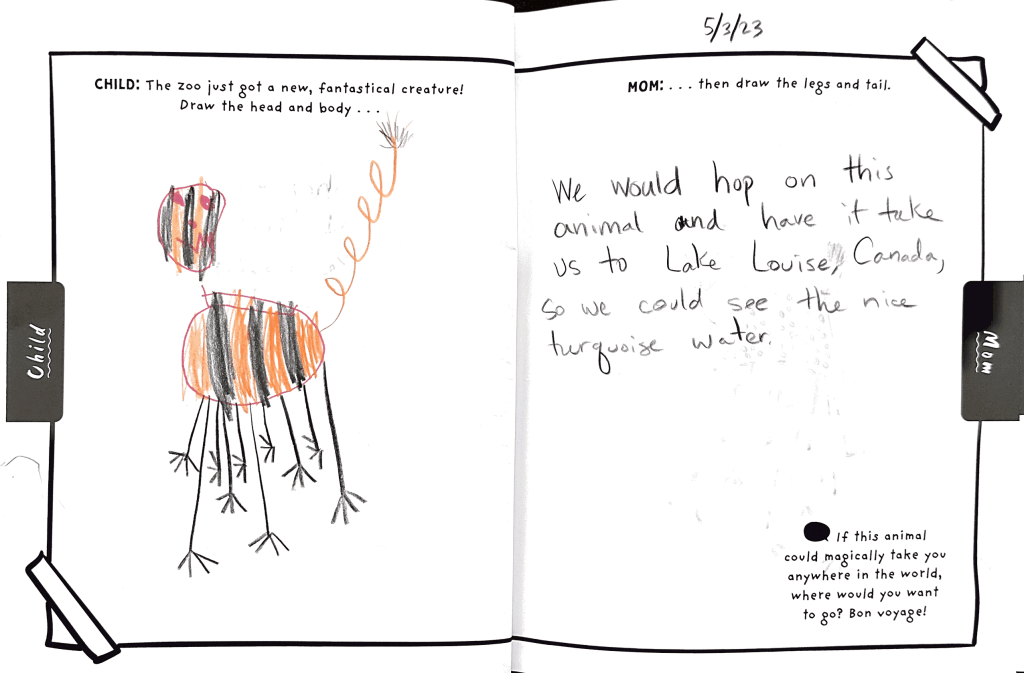 CHILD: The zoo just got a new, fantastical creature!
Draw the head and body . . .
Child
5/3/23
MOM: . . . then draw the legs and tail.
We would hop on this
animal and have it take
us to Lake Louise, Canada,
so we could see the nice
turquoise water.
Mom
If this animal
could magically take you
anywhere in the world,
where would you want
to go? Bon voyage!